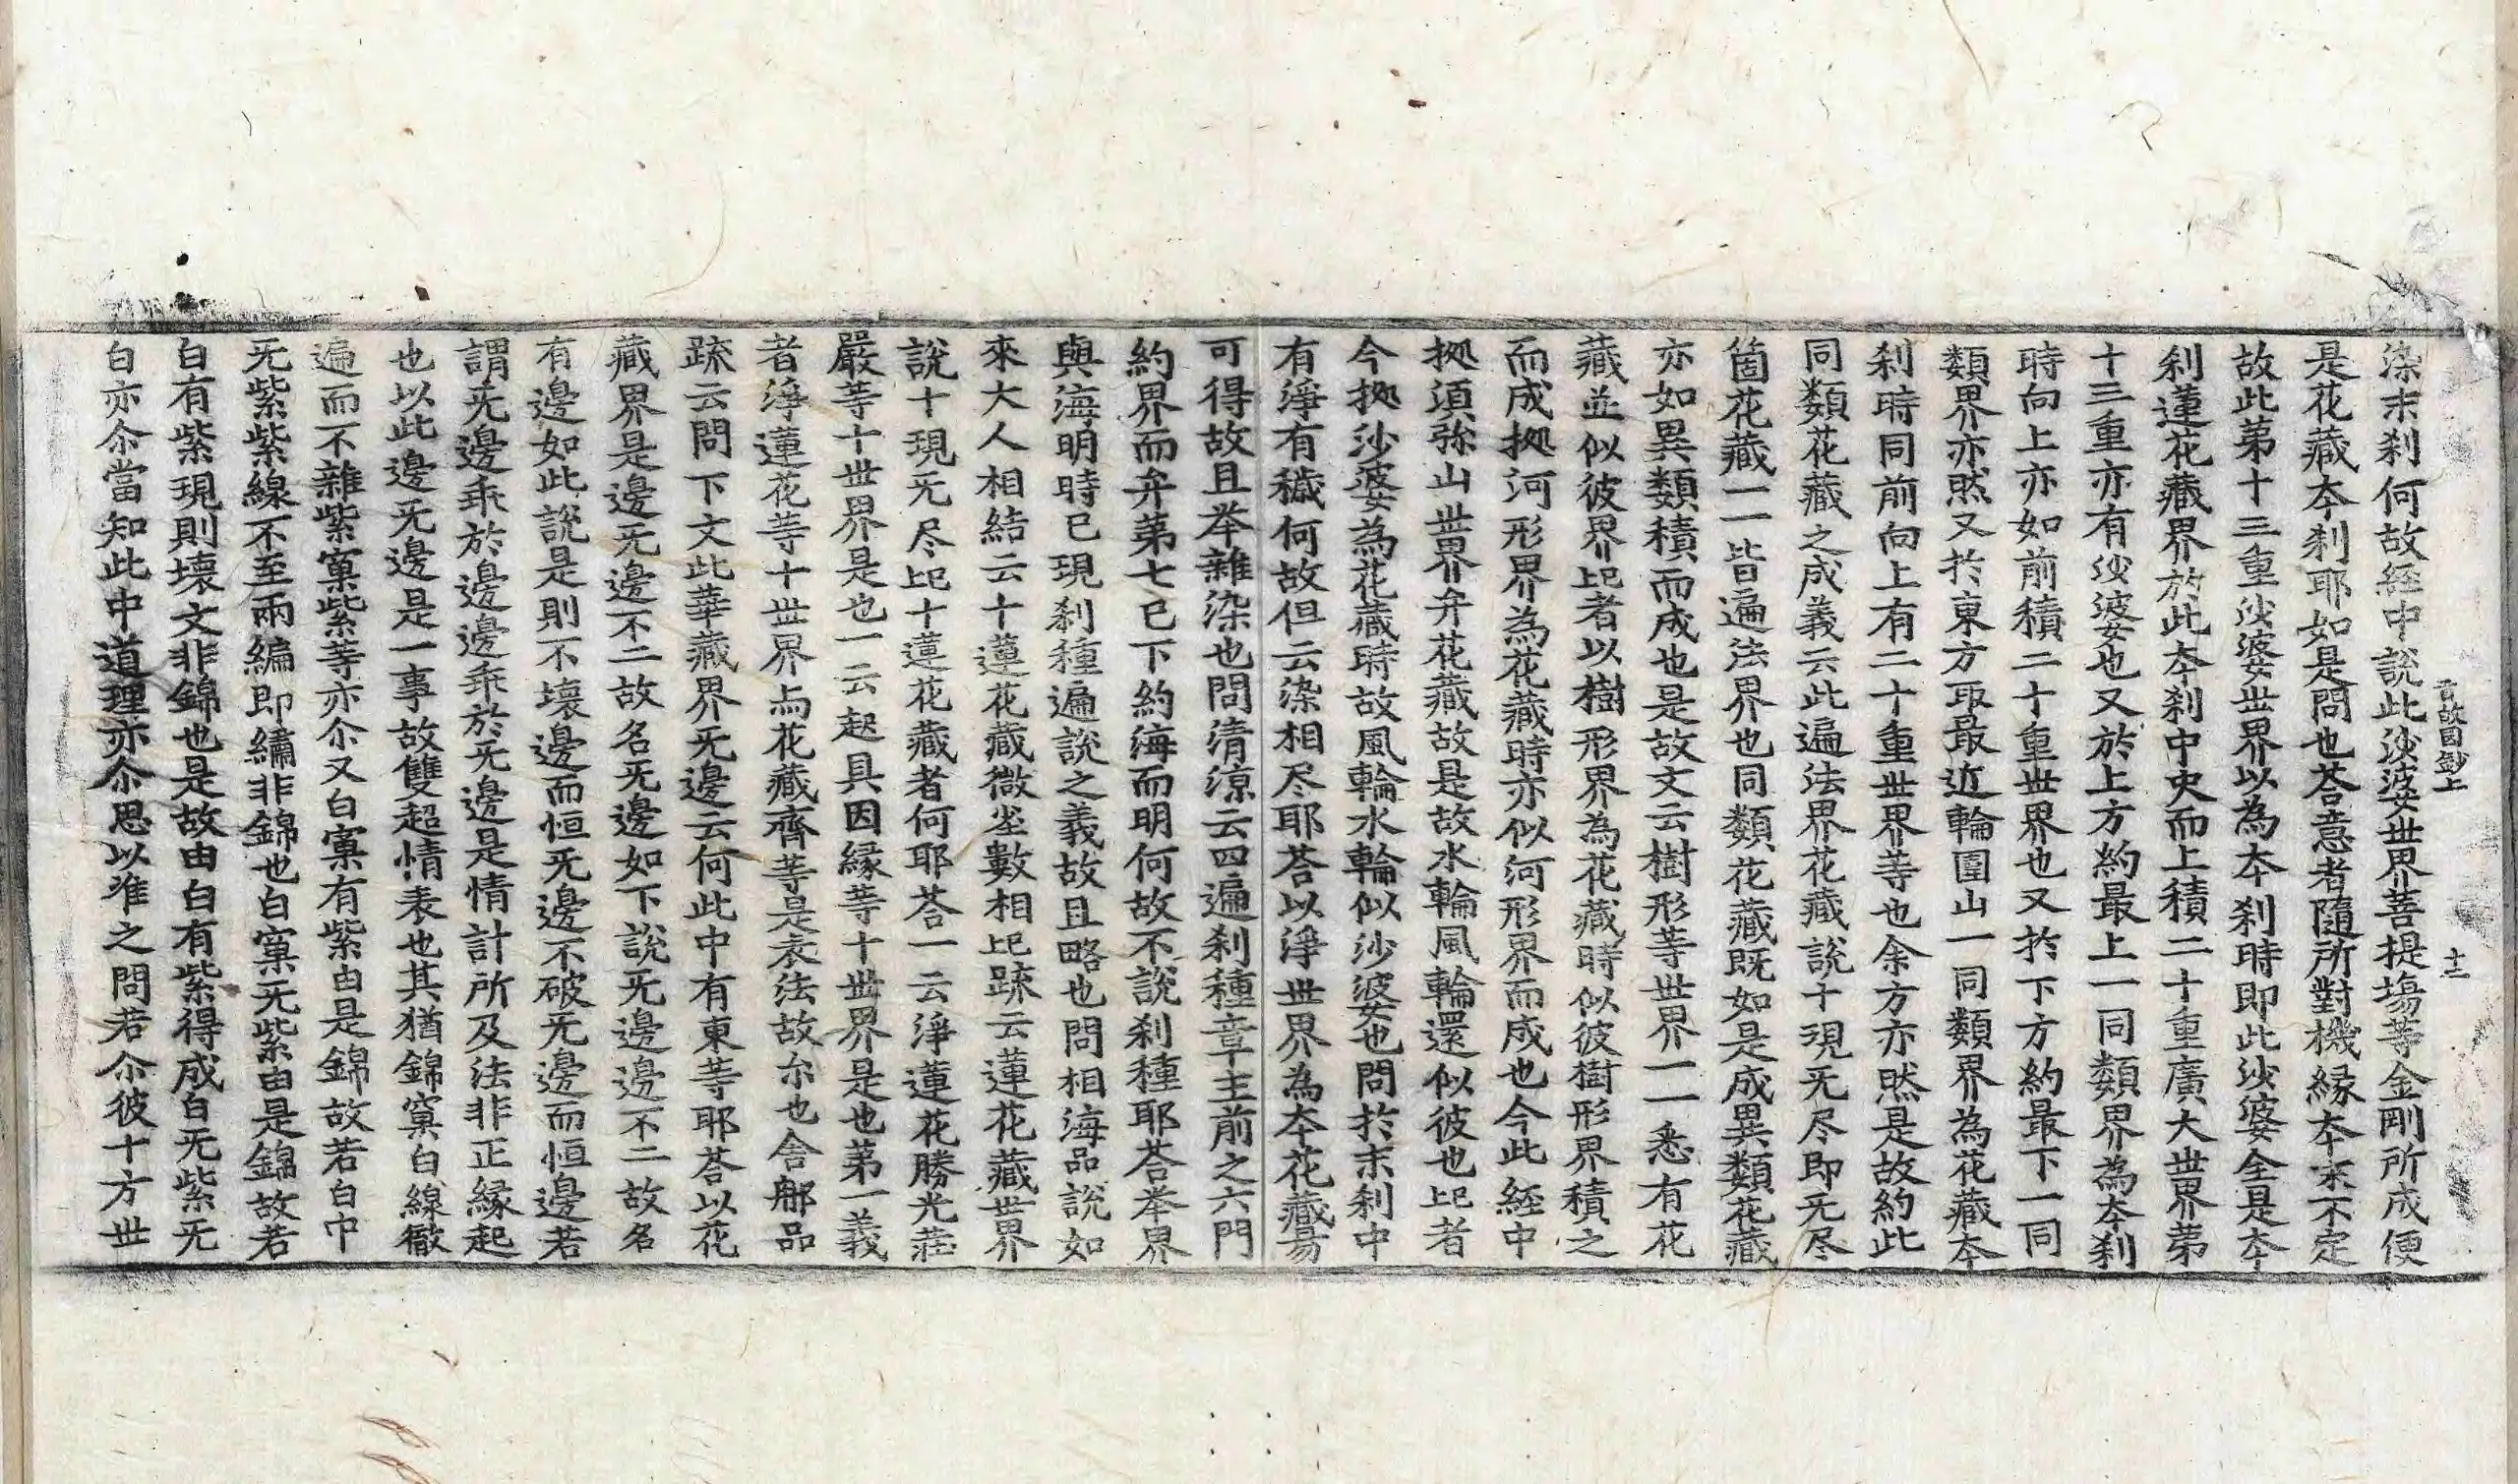 染末刹何故経中說此沙婆世界菩提塲等金剛所成便
是花藏夲刹耶如是問也荅意者隨所對機緣夲末不定
故此第十三重沙婆世界以為夲刹時即此沙婆全是夲
刹蓮花藏界於此夲刹中央而上積二十重廣大世界苐
十三重亦有沙婆也又於上方約最上一同類界為夲刹
時向上亦如前積二十重世界也又於下方約最下一同
類界亦然又於東方取最近輪圍山一同類界為花藏夲
刹時同前向上有二十重世界等也余方亦然是故約此
同類花藏之成義云此遍法界花藏說十現无尽即无尽
箇花藏一一皆遍法界也同類花藏既如是成異類花藏
亦如異類積而成也是故文云樹形等世界一一悉有花
藏並似彼界比者以樹形界為花藏時似彼樹形界積之
而成拠河形界為花藏時亦似河形界而成也今此経中
拠湏弥山世界弁花藏故是故水輪風輪還似彼也比者
今拠沙婆為花藏時故風輪水輪似沙婆也問於末刹中
有淨有穢何故但云染相尽耶荅以淨世界為夲花藏易
可得故且举雜染也問清涼云四遍刹種章主前之六門
約界而弁苐七已下約海而明何故不說刹種耶荅举界
與海明時已現刹種遍說之義故且略也問相海品說如
來大人相結云十蓮花藏微塵數相比疏云蓮花藏世界
說十現无尽比十蓮花藏者何耶荅一云淨蓮花勝光莊
嚴等十世界是也一云起具因緣等十世界是也苐一義
者淨蓮花等十世界与花藏齊等是表法故尒也舍那品
疏云問下文此華藏界无邊云何此中有東等耶荅以花
藏界是邊无邊不二故名无邊如下說无邊邊不二故名
有邊如此說是則不壞邊而恒无邊不破无邊而恒邊若
謂无邊乖於邊邊乖於无邊是情計所及法非正緣起
也以此邊无邊是一事故雙超情表也其猶錦窠白線徹
遍而不雜紫窠紫等亦尒又白窠有紫由是錦故若白中
无紫紫線不至兩編即繡非錦也白窠无紫由是錦故若
白有紫現則壞文非錦也是故由白有紫得成白无紫无
白亦尒當知此中道理亦尒思以准之問若尒彼十方世